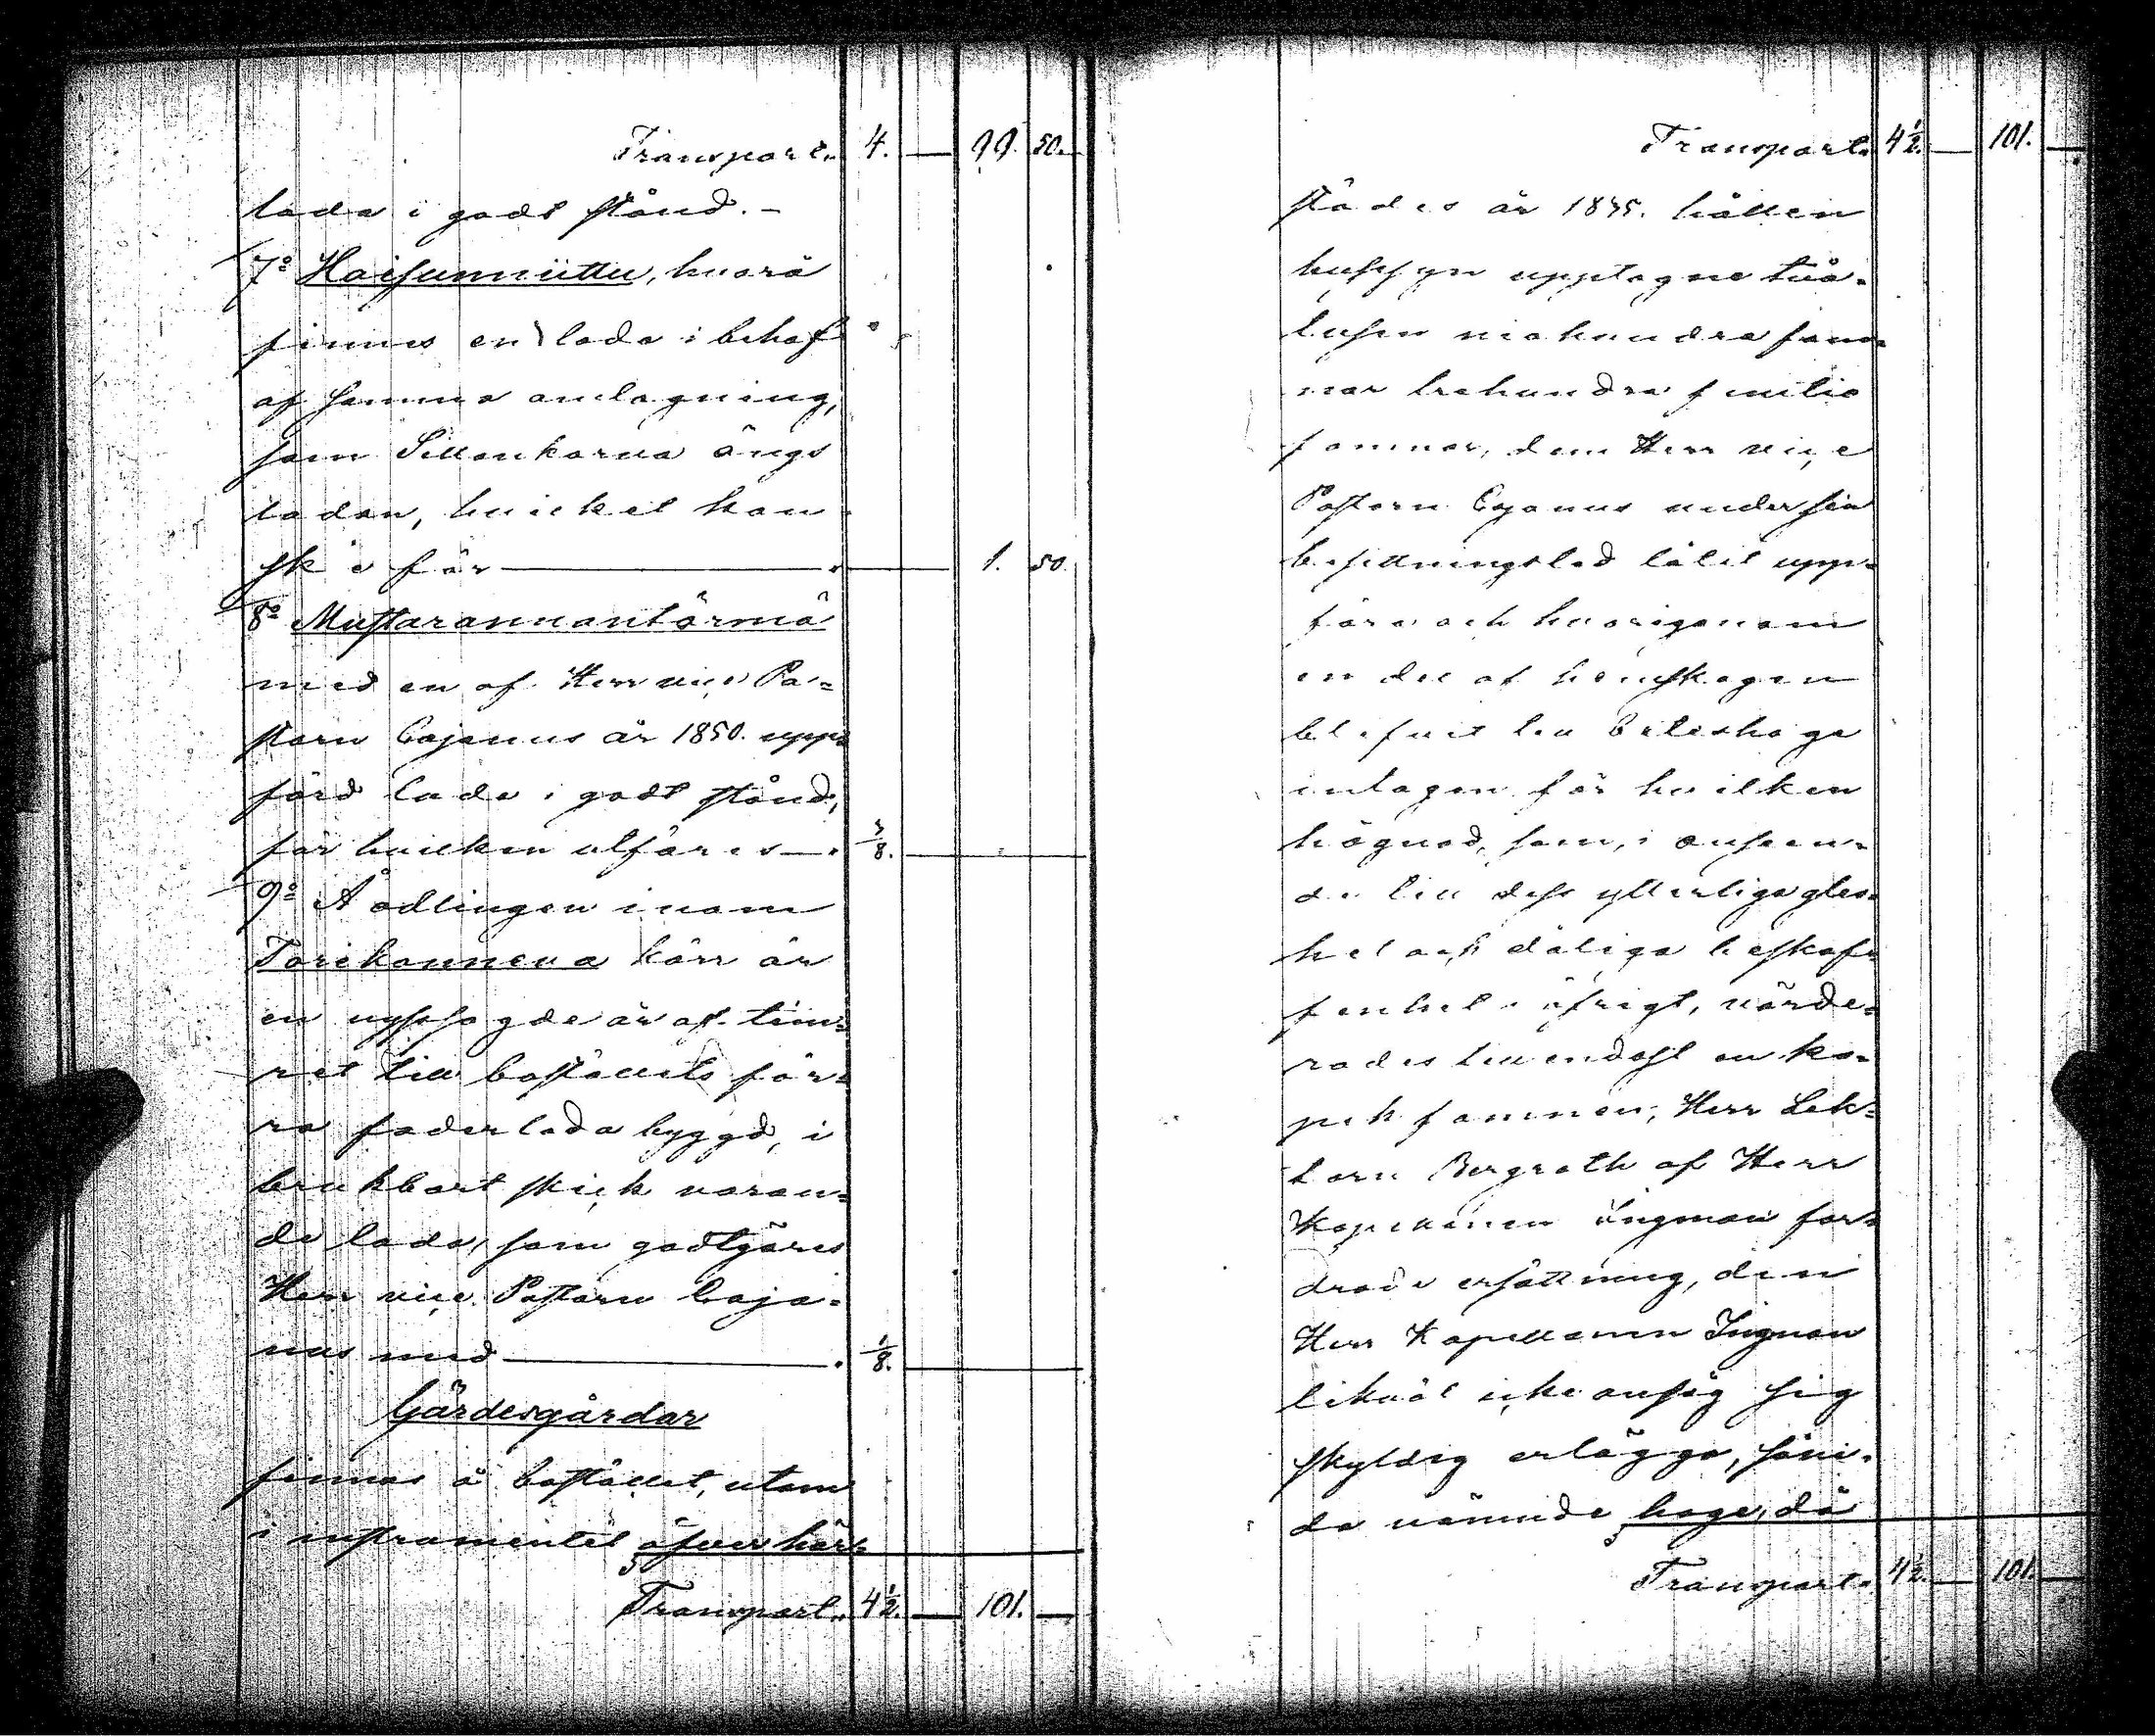 Transport. 4. — 99. 50.
lada i godt stånd. –
7:o Haisunniittu, hvarå
finnes en lada i behof
af samma omlagning,
som Sillankorva ängs
ladan, hvilket kan
ske för — 1. 50.
8:o Mustarannantörmä
med en af Herr vice Pa=
storn Cajanus år 1850. upp=
förd lada i godt stånd,
för hvilken utföres — 3/8.
9:o Å odlingen inom
Torikanneva kärr är
en nysssagde år af tim=
ret till boställets för=
ra foderlada byggd, i
brukbart skick varan=
de lada, som godtgöres
Herr vice Pastorn Caja=
nus med — 1/8.
Gärdesgårdar
finnas å bostället, utom
i instrumentet öfver här=
Transport. 4 1/2. — 101. —
Transport. 4 1/2. — 101. —
städes år 1845. hållen
hussyn upptagne två=
tusen niohundra fam=
nar trehundra femtio
famnar, dem Herr vice
Pastorn Cajanus under sin
besittningstid låtit upp=
föra och hvarigenom
en del af hemskogen
blifvit till beteshage
intagen för hvilken
hägnad, som, i anseen=
de till dess ytterliga gles=
het och dåliga beskaf=
fenhet i öfrigt, värde=
rades till endast en ko=
pek famnen, Herr Lek=
torn Bergroth af Herr
Kapellanen Ingman for=
drade ersättning, den
Herr Kapellanen Ingman
likväl icke ansåg sig
skyldig erlägga, seni.
da nämnde hage, då
Transport. 4 1/2. — 101. —